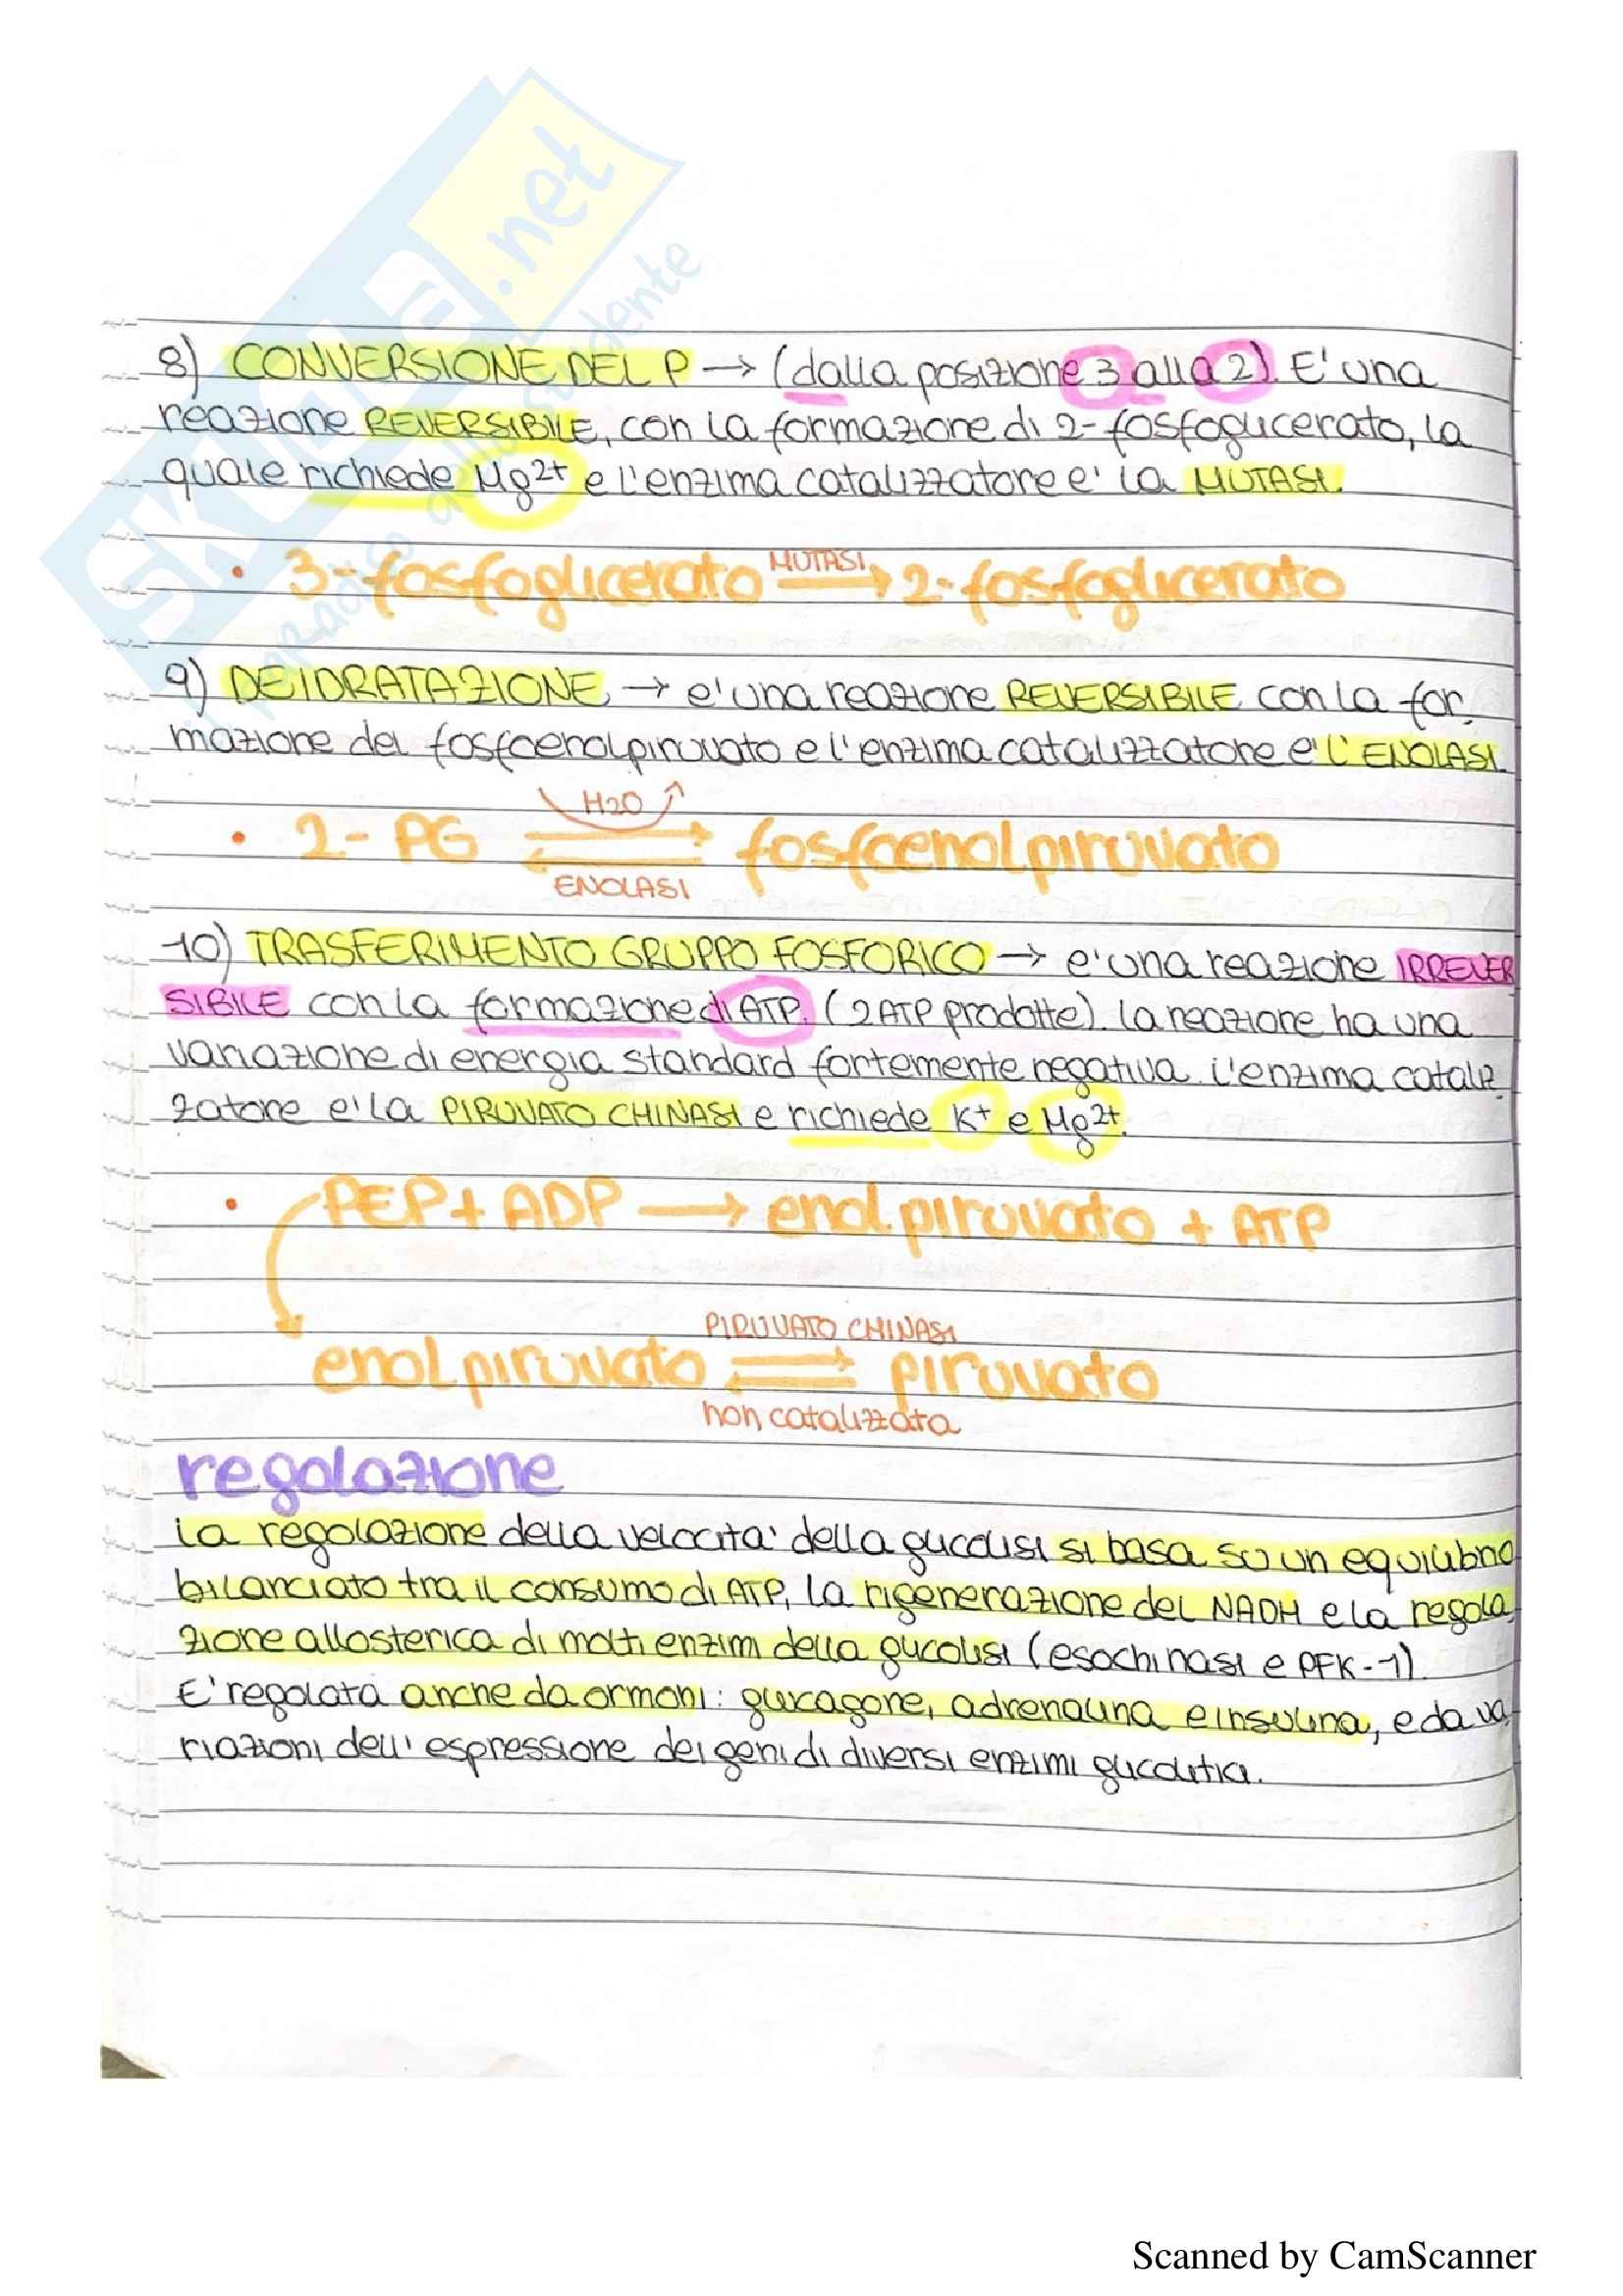 SKUOLA.net
il paradiso dello studente
8) CONVERSIONE DEL P → (dalla posizione 3 alla 2). E' una
reazione REVERSIBILE, con la formazione di 2-fosfoglicerato, la
quale richiede Mg2+ e l'enzima catalizzatore e' la MUTASI.
• 3-fosfoglicerato MUTASI → 2-fosfoglicerato
9) DEIDRATAZIONE → e' una reazione REVERSIBILE con la for
mazione del fosfoenolpiruvato e l'enzima catalizzatore e' l'ENOLASI
H2O
• 2-PG ⇌ fosfoenolpiruvato
ENOLASI
10) TRASFERIMENTO GRUPPO FOSFORICO → e' una reazione IRREVER
SIBILE con la formazione di ATP. (2 ATP prodotte). La reazione ha una
variazione di energia standard fortemente negativa. L'enzima cataliz
zatore e' la PIRUVATO CHINASI e richiede K+ e Mg2+.
• PEP + ADP → enolpiruvato + ATP
PIRUVATO CHINASI
enolpiruvato ⇌ piruvato
non catalizzata
regolazione
La regolazione della velocita' della glicolisi si basa su un equilibrio
bilanciato tra il consumo di ATP, la rigenerazione del NADH e la regola
zione allosterica di molti enzimi della glicolisi (esochinasi e PFK-1)
E' regolata anche da ormoni: glucagone, adrenalina e insulina, e da va
riazioni dell'espressione dei geni di diversi enzimi glicolitici.
Scanned by CamScanner